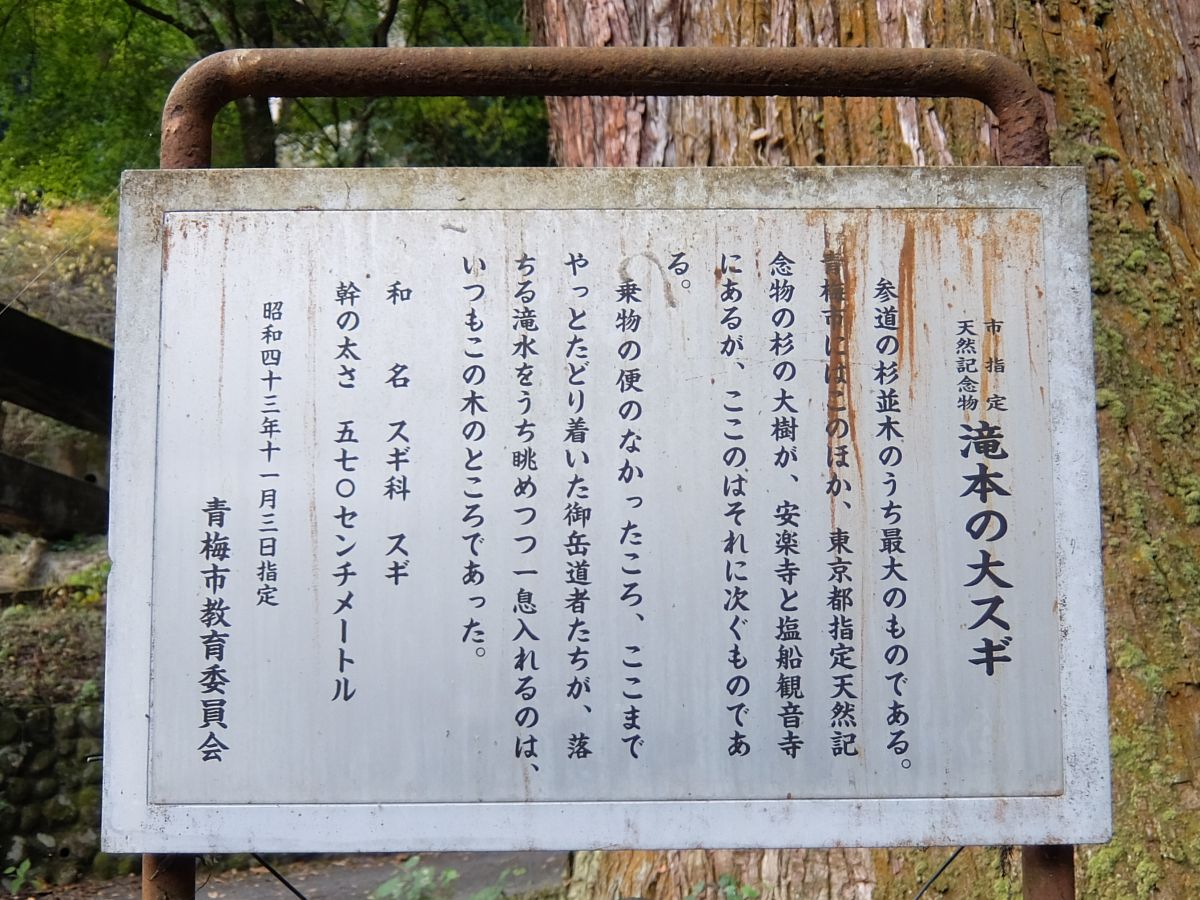 市指定
天然記念物
滝本の大スギ
参道の杉並木のうち最大のものである。
青梅市にはこのほか、東京都指定天然記
念物の杉の大樹が、安楽寺と塩船観音寺
にあるが、ここのはそれに次ぐものであ
る。
乗物の便のなかったころ、ここまで
やっとたどり着いた御岳道者たちが、落
ちる滝水をうち眺めつつ一息入れるのは、
いつもこの木のところであった。
和 名 スギ科 スギ
幹の太さ 五七〇センチメートル
昭和四十三年十一月三日指定
青梅市教育委員会